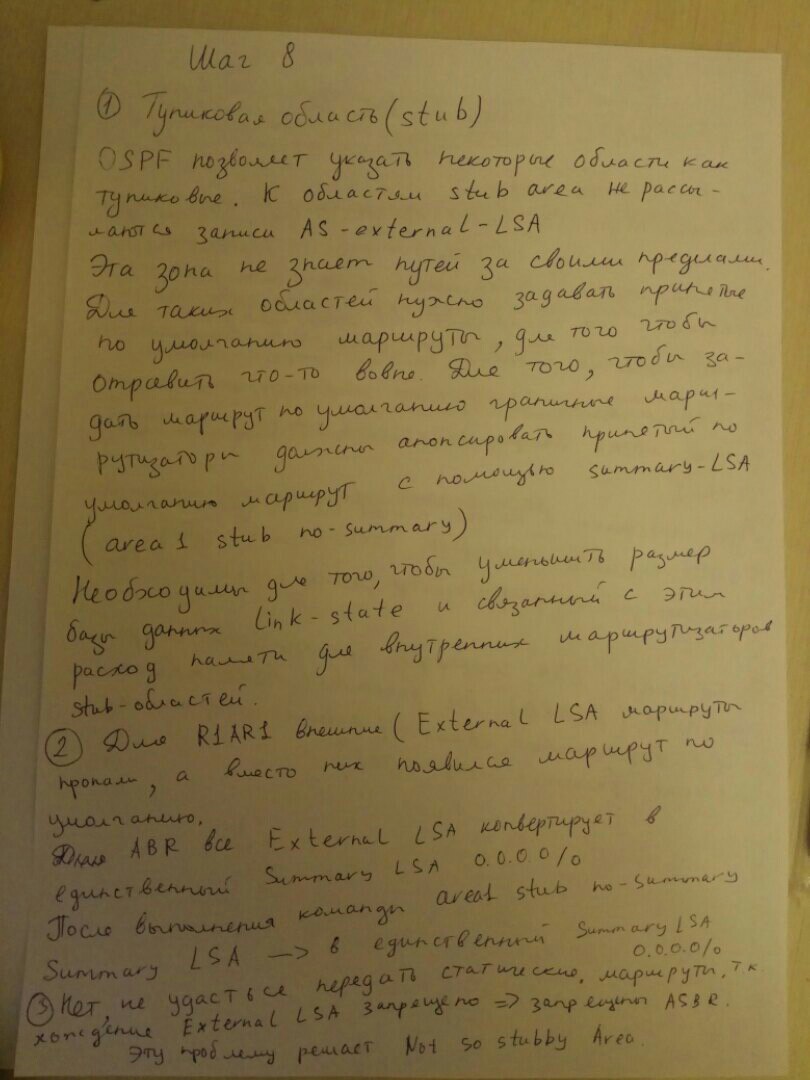 Шаг 8
① Тупиковая область (stub)
OSPF позволяет указать некоторые области как
тупиковые. К областям stub area не рассы-
лаются записи AS-external-LSA
Эта зона не знает путей за своими пределами.
Для таких областей нужно задавать принятые
по умолчанию маршруты, для того чтобы
отравить что-то вовне. Для того, чтобы за-
дать маршрут по умолчанию граничные марш-
рутизаторы должны анонсировать принятый по
умолчанию маршрут с помощью summary-LSA
(area 1 stub no-summary)
Необходимы для того, чтобы уменьшить размер
базы данных link-state и связанный с этим
расход памяти для внутренних маршрутизаторов
stub-областей.
② Для R1AR1 внешние (External LSA маршруты
пропали, а вместо них появился маршрут по
умолчанию.
Для ABR все External LSA конвертирует в
единственный Summary LSA 0.0.0.0/0
После выполнения команды area1 stub no-summary
Summary LSA —> в единственный Summary LSA
0.0.0.0/0
③ Нет, не удасться передать статические маршруты, т.к.
хождение External LSA запрещено => запрещены ASBR.
Эту проблему решает Not so stubby Area.